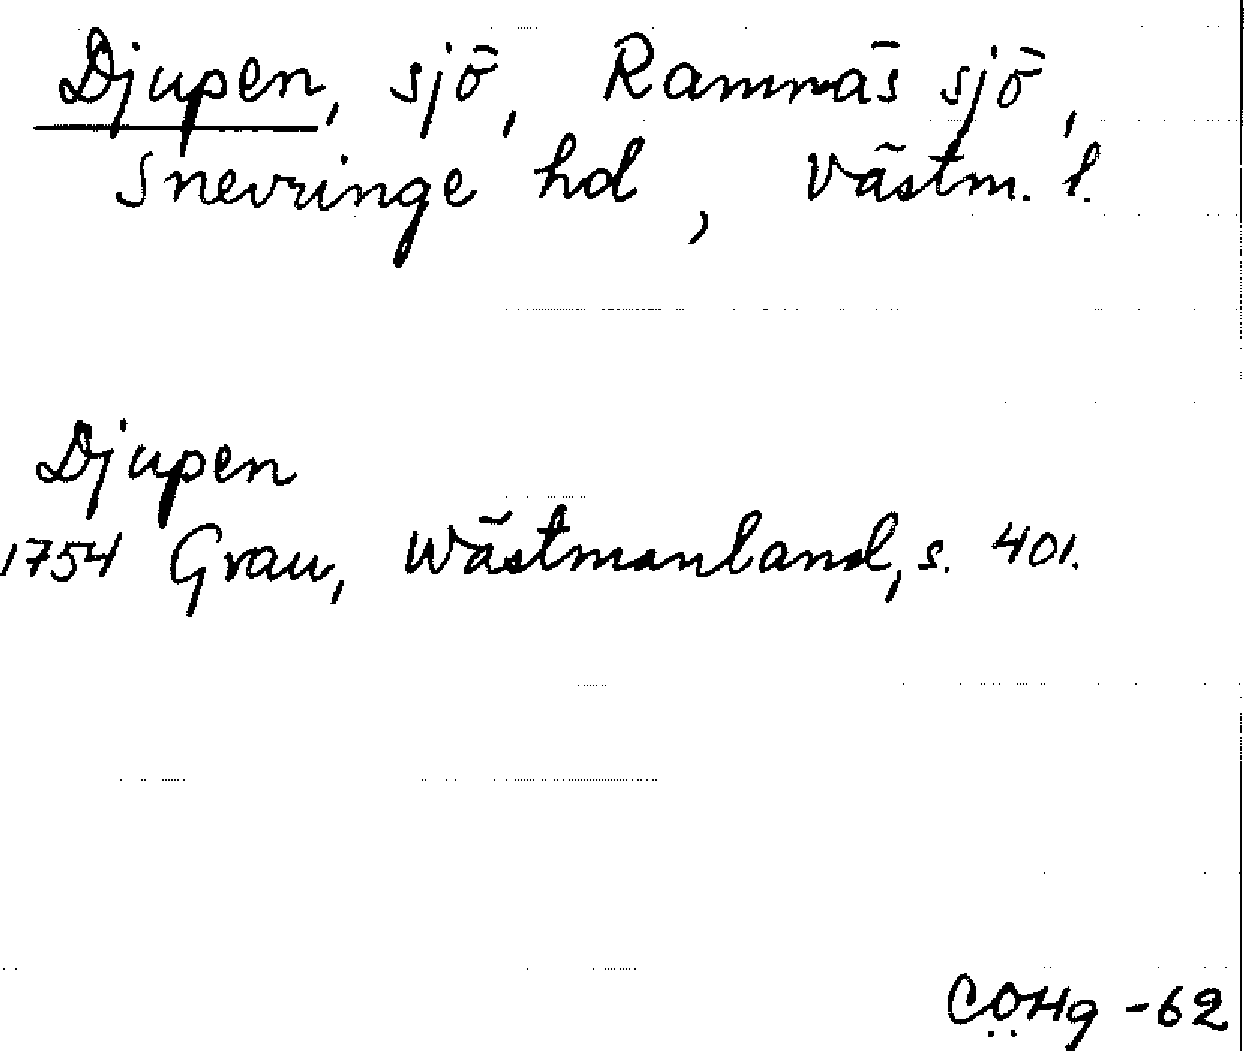 Djupen, sjö, Ramnäs sjö,
Snevringe hd, Västm. l.
Djupen
1754 Grau, Wästmanland, s. 401.
CÖHg -62